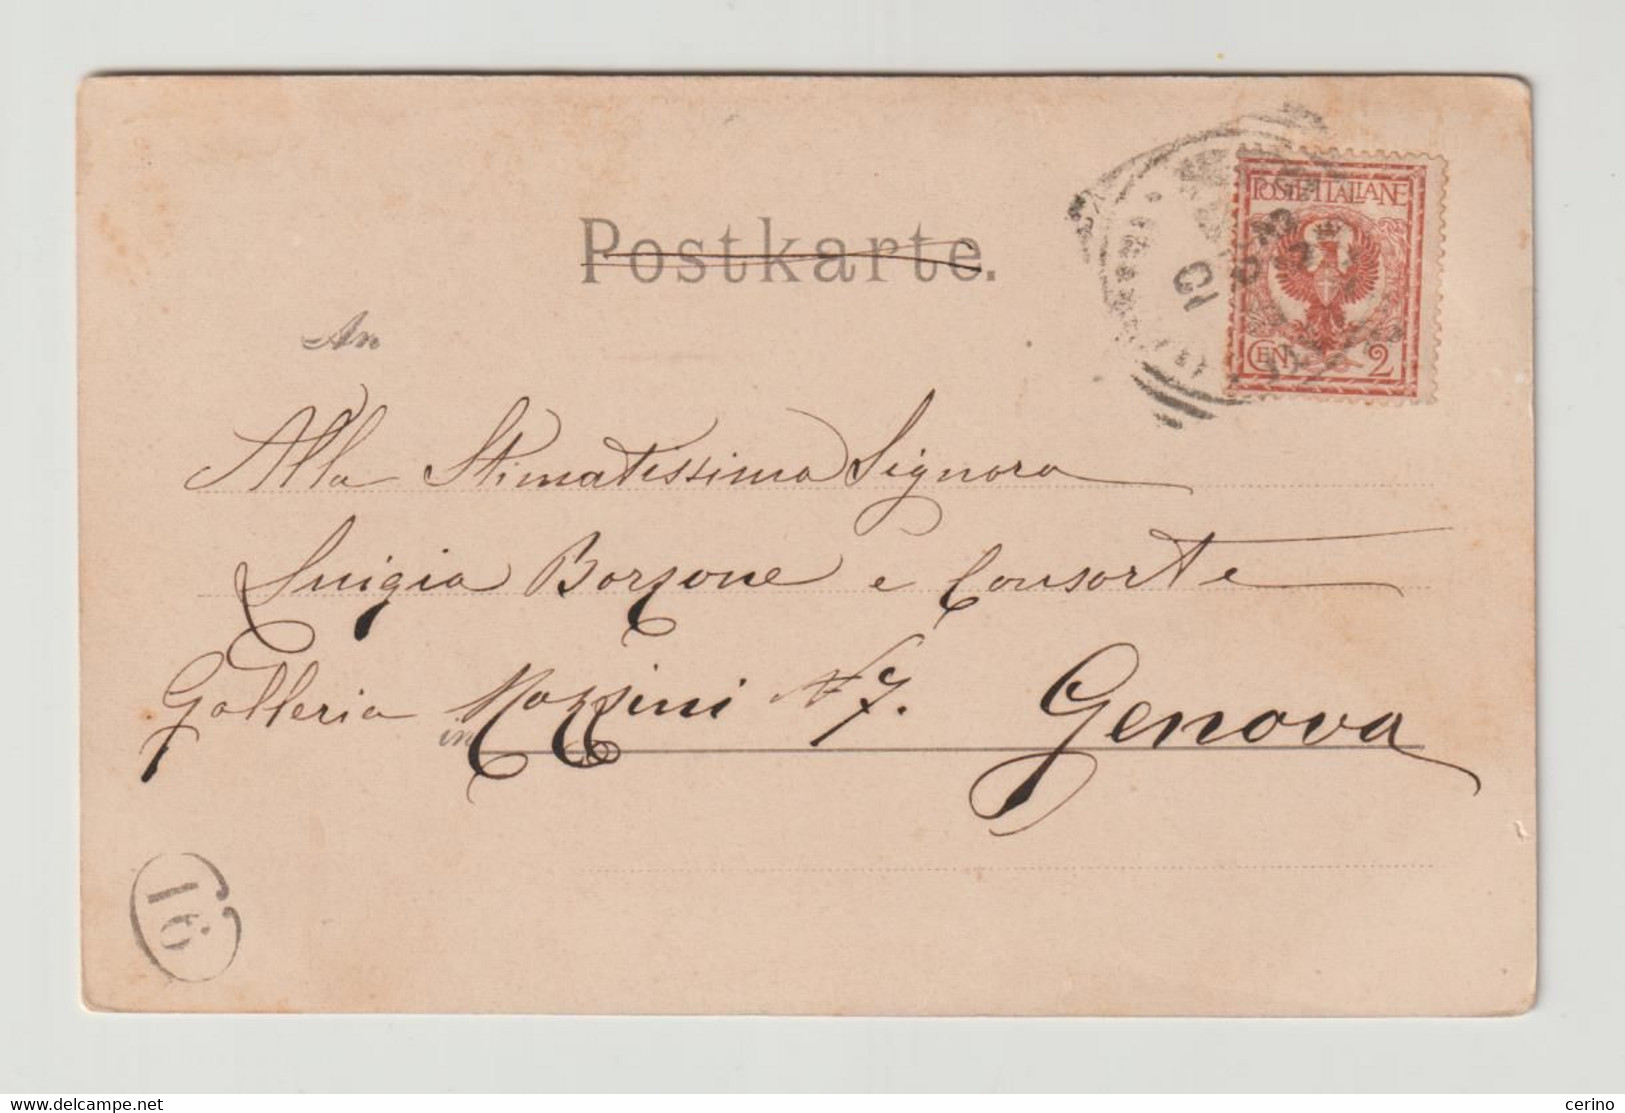 Postkarte.
POSTE ITALIANE
CEN. 2
An
Alla Stimatissima Signora
Luigia Borzone e Consorte
Galleria Mazzini N 7. Genova
in
16
cerino